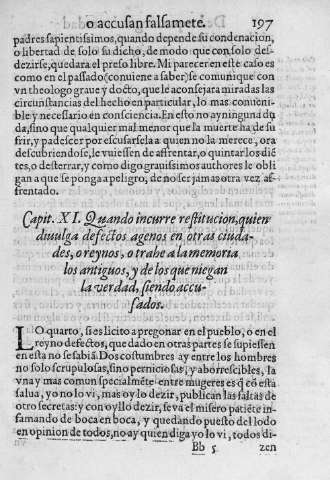 o accusan falsamēte. 197
padres sapientissimos, quando depende su condenacion,
o libertad de solo su dicho, de modo que con solo des-
dezirse, quedara el preso libre. Mi parecer en este caso es
como en el passado (conuiene a saber) se comunique con
vn theologo graue y docto, que le aconsejara miradas las
circunstancias del hecho en particular, lo mas conueni-
ble y necessario en consciencia. En esto no ay ninguna du
da, sino que qualquier mal menor que la muerte ha de su
frir, y padescer por escusarsela a quien no la merece, ora
descubriendose, le vuiessen de affrentar, o quintar los diē
tes, o desterrar, y como digo grauissimos authores le obli
gan a que se ponga a peligro, de no ser jamas otra vez af-
frentado.
Capit. XI. Quando incurre restitucion, quien
diuulga defectos agenos en otras ciuda-
des, o reynos, o trahe a la memoria
los antiguos, y de los que niegan
la verdad, siendo accu-
sados.
LO quarto, si es licito apregonar en el pueblo, o en el
reyno defectos, que dado en otras partes se supiessen
en esta no se sabiā. Dos costumbres ay entre los hombres
no solo scrupulosas, sino perniciosas, y aborrescibles, la
vna y mas comun specialmēte entre mugeres es q̄ cō esta
salua, yo no lo vi, mas oylo dezir, publican las faltas de
otro secretas: y con oyllo dezir, se va el misero patiēte in-
famando de boca en boca, y quedando puesto del lodo
en opinion de todos, no ay quien diga yo lo vi, todos di-
Bb 5 zen